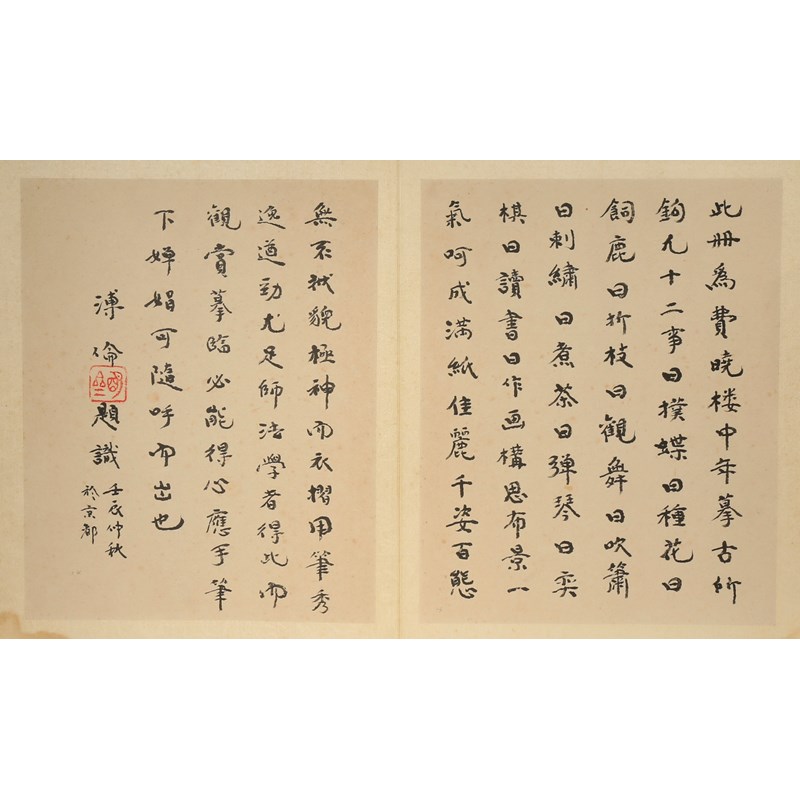 此册為費曉楼中年摹古所
鉤凡十二事曰撲蝶曰種花曰
飼鹿曰折枝曰觀舞曰吹簫
曰刺繡曰煮茶曰弹琴曰奕
棋曰讀書曰作画構思布景一
氣呵成满紙佳麗千姿百態
無不狀貌極神而衣摺用筆秀
逸遒勁尤足師法學者得此而
觀賞摹臨必能得心應手筆
下婵娟可隨呼而出也
溥倫題識
壬辰仲秋
於京都